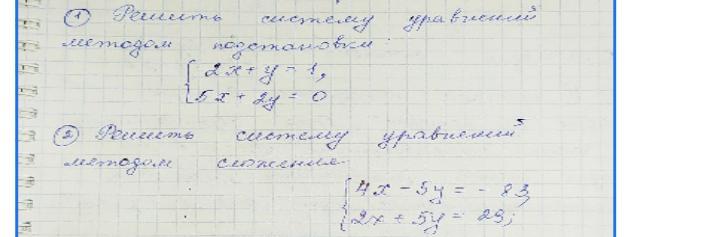 ① Решить систему уравнений
методом подстановки:
2x + y = 1,
5x + 2y = 0
② Решить систему уравнений
методом сложения
4x - 5y = - 83,
2x + 5y = 29;